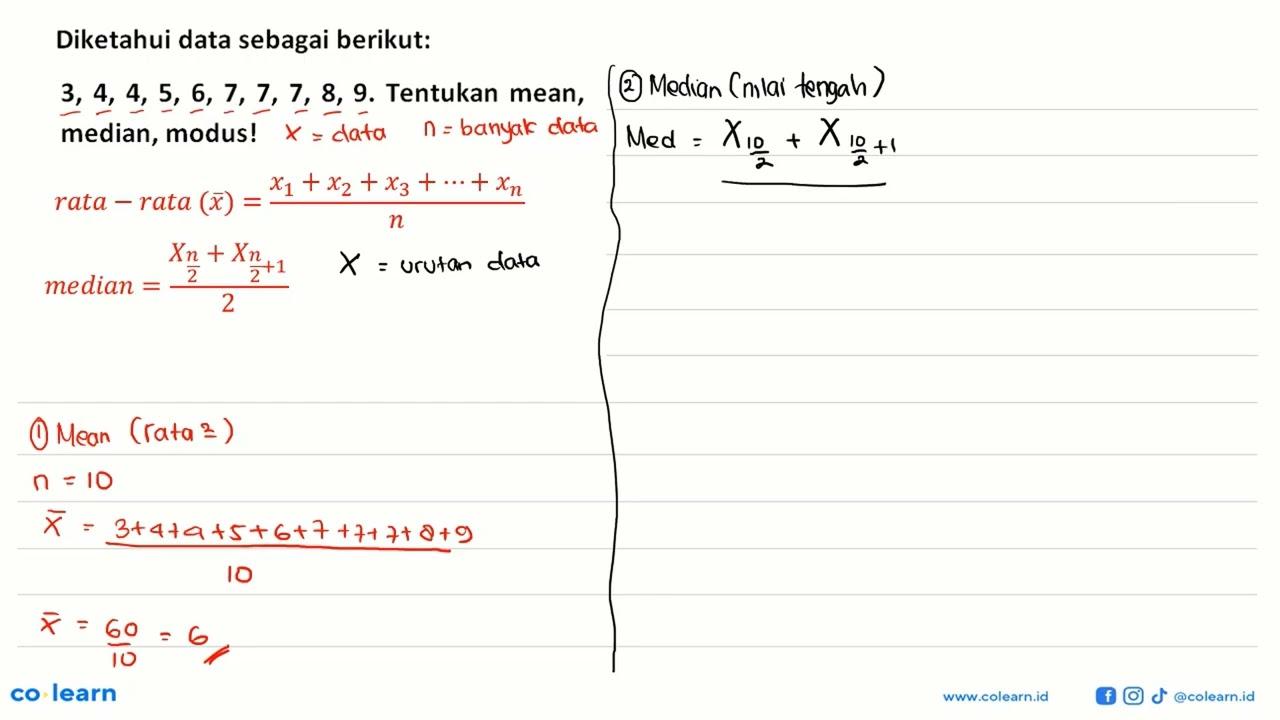 Diketahui data sebagai berikut:
3, 4, 4, 5, 6, 7, 7, 7, 8, 9. Tentukan mean,
median, modus! x = data n = banyak data
rata − rata (x̄) = (x₁ + x₂ + x₃ + ⋯ + xₙ)/n
median = (X_{n/2} + X_{n/2+1})/2
X = urutan data
① Mean (rata²)
n = 10
x̄ = (3+4+4+5+6+7+7+7+8+9)/10
x̄ = 60/10 = 6
② Median (nilai tengah)
Med = X_{10/2} + X_{10/2+1}
co·learn
www.colearn.id
@colearn.id